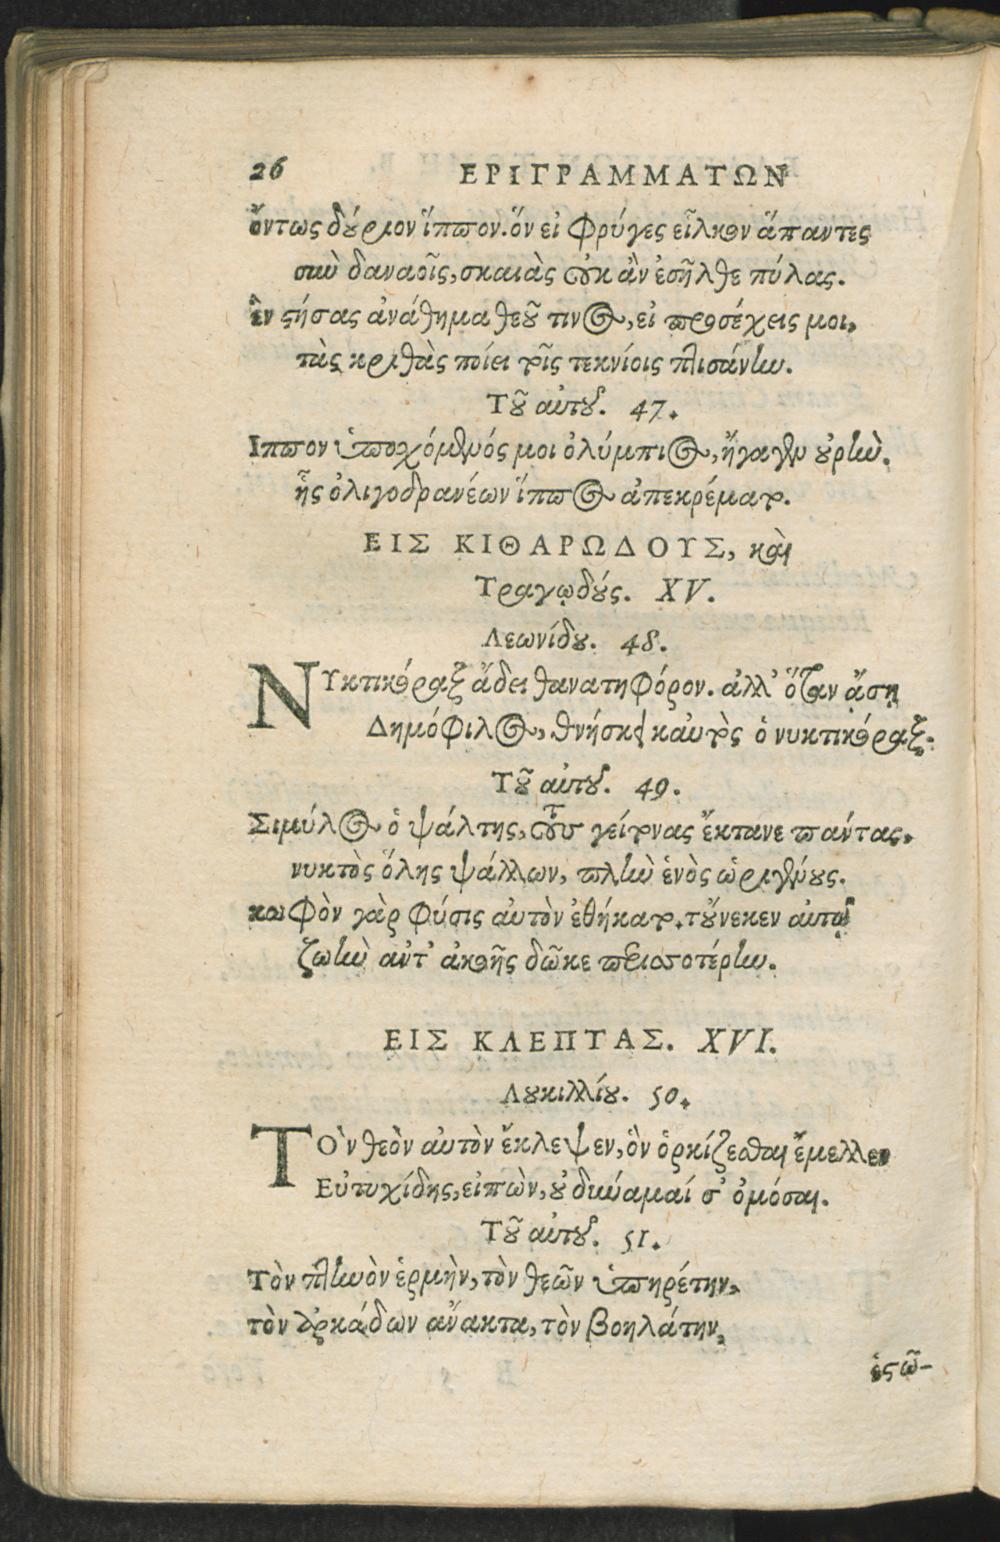 26 ΕΡΙΓΡΑΜΜΑΤΩΝ
ὄντως δούριον ἵππον. ὅν εἰ Φρύγες εἷλκον ἅπαντες
σὺν δαναοῖς, σκαιὰς οὐκ ἂν ἐσῆλθε πύλας.
ὃν στήσας ἀνάθημα θεοῦ τινος, εἰ προσέχεις μοι,
τὰς κριθὰς ποίει τοῖς τεκνίοις πτισάνην.
Τοῦ αὐτοῦ. 47.
Ιππον ὑποσχόμενός μοι ὀλύμπιος, ἤγαγεν οὐρὴν.
ἧς ὀλιγοδρανέων ἵππος ἀπεκρέματο.
ΕΙΣ ΚΙΘΑΡΩΔΟΥΣ, καὶ
Τραγῳδούς. XV.
Λεωνίδου. 48.
ΝΥκτικόραξ ἄδει θανατηφόρον. ἀλλ' ὅταν ᾄσῃ
Δημόφιλος, θνήσκει καὐτὸς ὁ νυκτικόραξ.
Τοῦ αὐτοῦ. 49.
Σιμύλος ὁ ψάλτης, τοὺς γείτονας ἔκτανε πάντας,
νυκτὸς ὅλης ψάλλων, πλὴν ἑνὸς ὠριγένους.
κωφὸν γὰρ φύσις αὐτὸν ἐθήκατο. τοὔνεκεν αὐτῷ
ζωὴν ἀντ' ἀκοῆς δῶκε περισσοτέρην.
ΕΙΣ ΚΛΕΠΤΑΣ. XVI.
Λουκιλλίου. 50.
ΤῸν θεὸν αὐτὸν ἔκλεψεν, ὃν ὁρκίζεσθαι ἔμελλεν
Εὐτυχίδης, εἰπὼν, οὐ δύναμαί σ' ὀμόσαι.
Τοῦ αὐτοῦ. 51.
Τὸν πτηνὸν ἑρμὴν, τὸν θεῶν ὑπηρέτην,
τὸν ἀρκάδων ἄνακτα, τὸν βοηλάτην,
ἑστῶ-